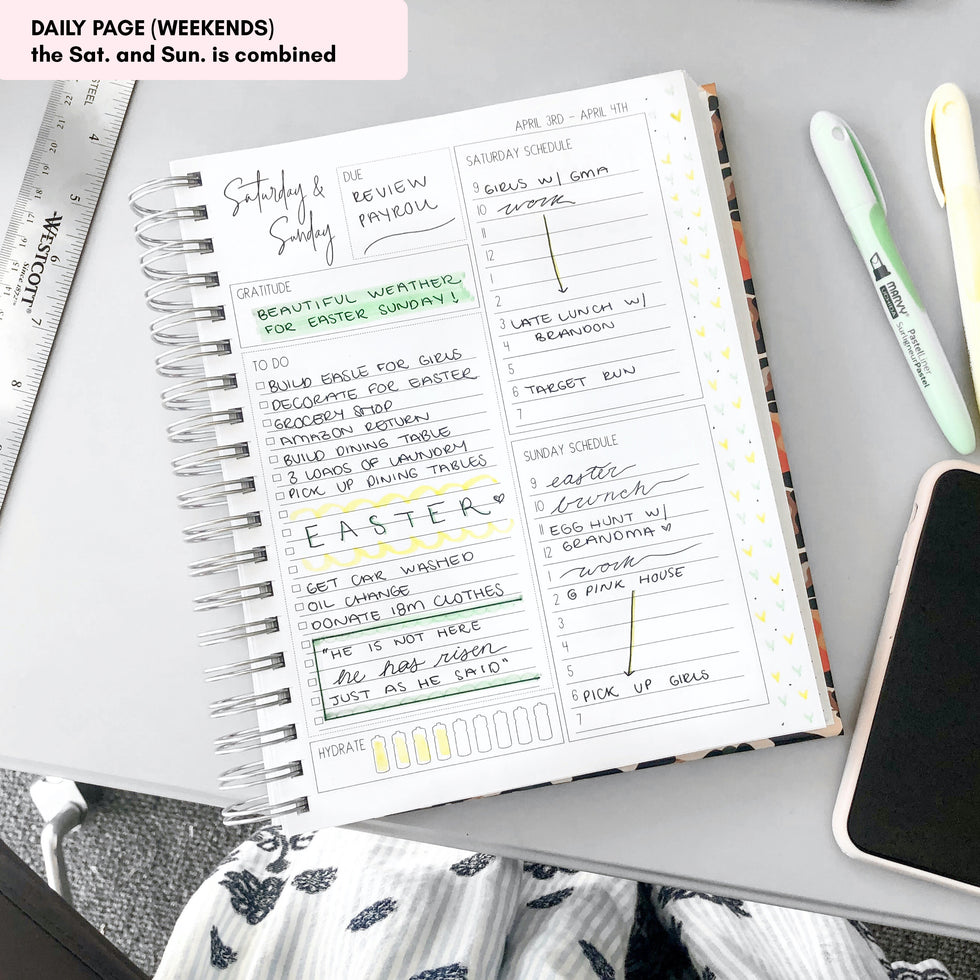 DAILY PAGE (WEEKENDS)
the Sat. and Sun. is combined
APRIL 3RD - APRIL 4TH
Saturday &
Sunday
DUE
REVIEW
PAYROLL
GRATITUDE
BEAUTIFUL WEATHER
FOR EASTER SUNDAY!
TO DO
BUILD EASLE FOR GIRLS
DECORATE FOR EASTER
GROCERY SHOP
AMAZON RETURN
BUILD DINING TABLE
3 LOADS OF LAUNDRY
PICK UP DINING TABLES
EASTER
GET CAR WASHED
OIL CHANGE
DONATE 18M CLOTHES
"HE IS NOT HERE
he has risen
JUST AS HE SAID"
HYDRATE
SATURDAY SCHEDULE
9 GIRLS W/ GMA
10 work
11
12
1
2
3 LATE LUNCH W/
BRANDON
4
5
6 TARGET RUN
7
SUNDAY SCHEDULE
9 easter
10 brunch
11 EGG HUNT W/
12 GRANDMA
1 work
2 @ PINK HOUSE
3
4
5
6 PICK UP GIRLS
7
STEEL
WESTCOTT
Since 1872
4
5
6
7
8
MARVY
UCHIDA
PastelLiner
SurligneurPastel